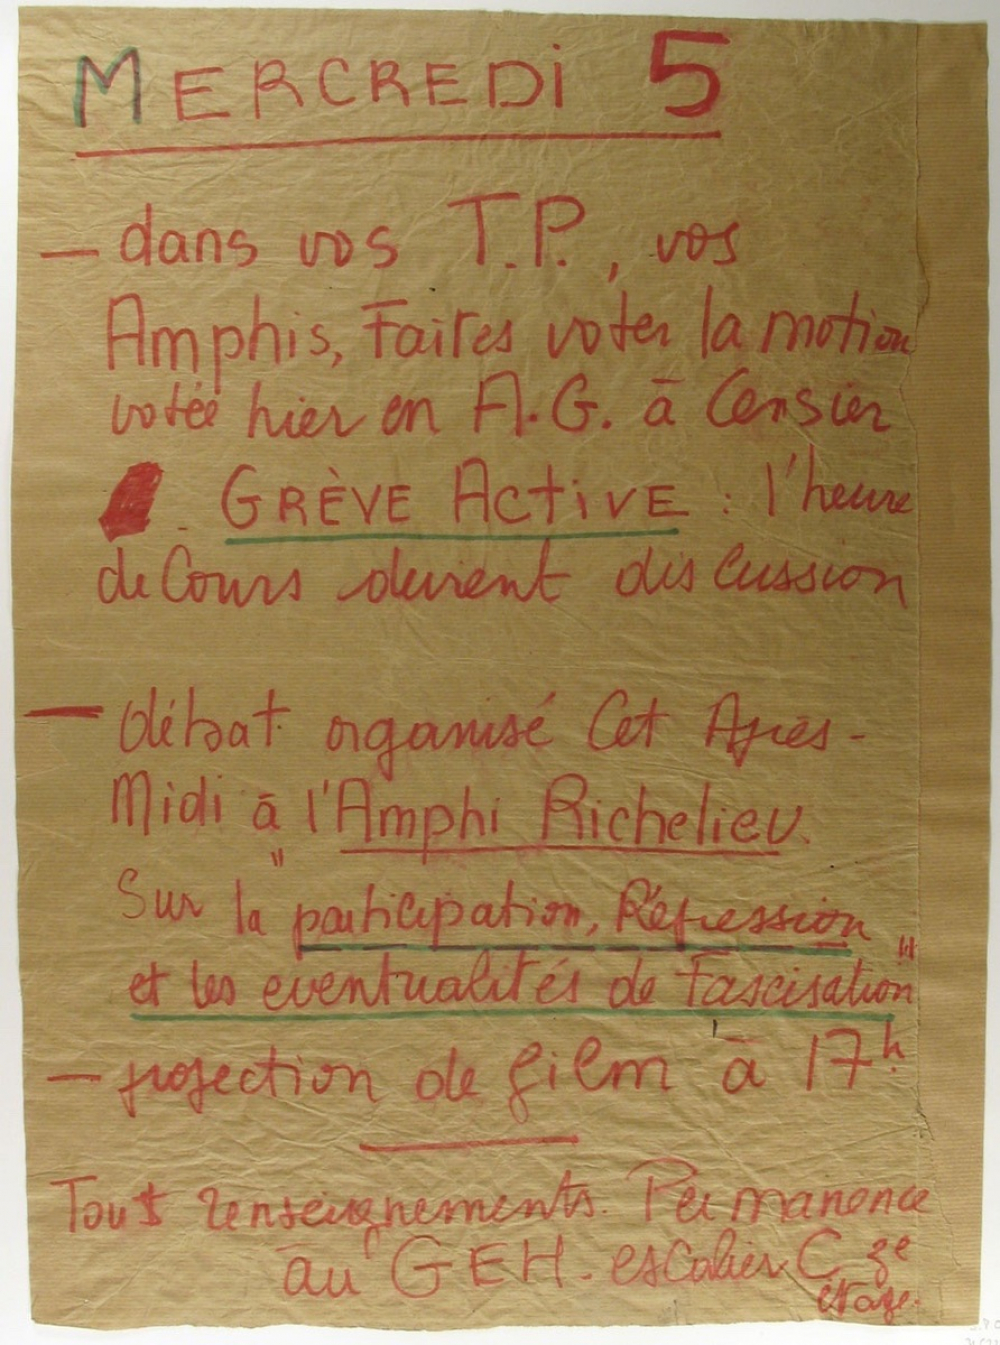 MERCREDI 5
— dans vos T.P., vos
Amphis, Faites voter la motion
votée hier en A.G. à Censier
- GRÈVE ACTIVE : l'heure
de Cours devient discussion
— débat organisé Cet Après-
Midi à l'Amphi Richelieu.
Sur la "participation, Répression
et les eventualités de Fascisation"
— projection de film à 17h.
Tous renseignements. Permanence
au GEH. escalier C 3e
étage.